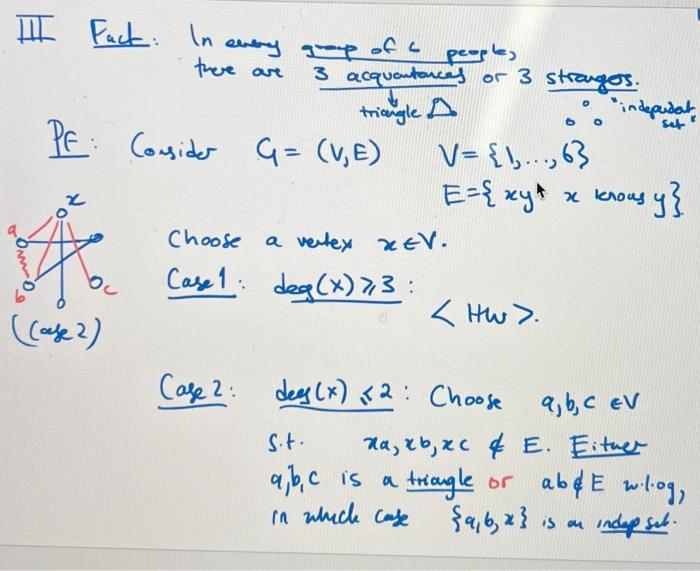 III Fact: In every group of 6 people,
there are 3 acquaintances or 3 strangers.
triangle "independent set"
Pf: Consider G = (V,E) V = {1,...,6}
E = { xy x knows y}
x
a
b
c
(Case 2)
Choose a vertex x ∈ V.
Case 1: deg(x) ⩾ 3 :
< HW >.
Case 2: deg(x) ⩽ 2 : Choose a,b,c ∈ V
s.t. xa, xb, xc ∉ E. Either
a,b,c is a triangle or ab ∉ E w.l.o.g,
in which case {a,b,x} is an indep set.